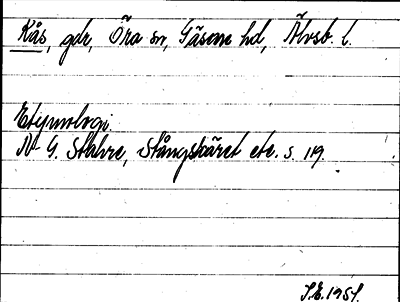 Kås, gdr, Öra sn, Gäsene hd, Älvsb. l.
Etymologi.
N G. Stahre, Stångskäret etc. s. 119.
S.E. 1951.